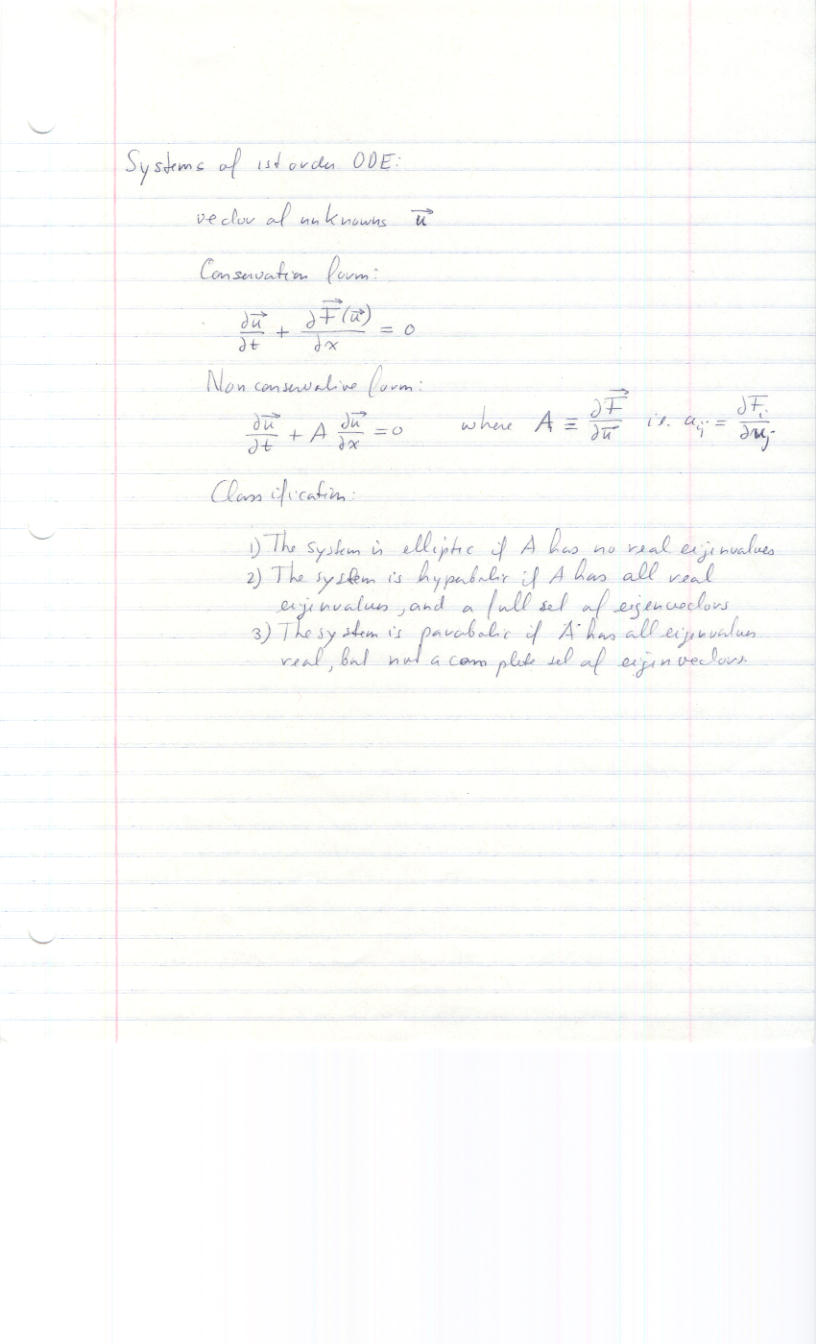 Systems of 1st order ODE:
vector of unknowns $\vec{u}$
Conservation form:
$\frac{\partial \vec{u}}{\partial t} + \frac{\partial \vec{F}(\vec{u})}{\partial x} = 0$
Nonconservative form:
$\frac{\partial \vec{u}}{\partial t} + A \frac{\partial \vec{u}}{\partial x} = 0$ where $A \equiv \frac{\partial \vec{F}}{\partial \vec{u}}$ i.e. $a_{ij} = \frac{\partial F_i}{\partial u_j}$
Classification:
1) The system is elliptic if A has no real eigenvalues
2) The system is hyperbolic if A has all real
eigenvalues, and a full set of eigenvectors
3) The system is parabolic if A has all eigenvalues
real, but not a complete set of eigenvectors.